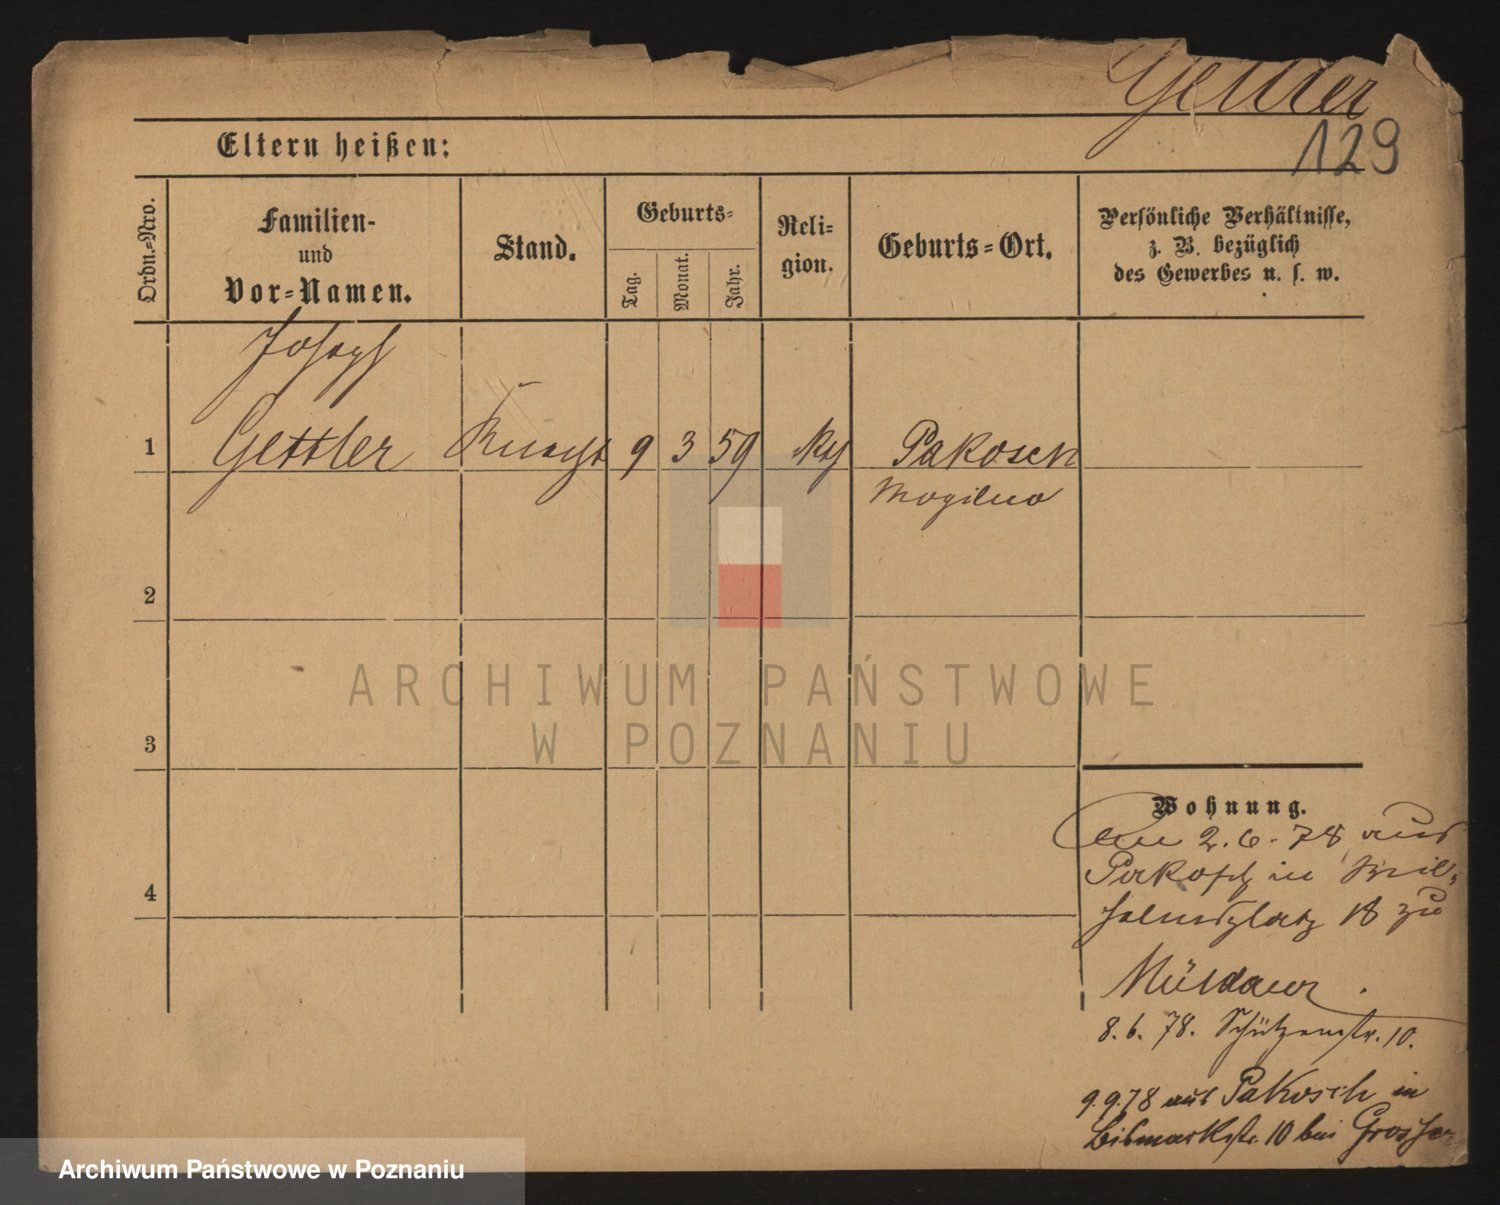 Gettler
129
Eltern heißen:
Ordn.=Nro.
Familien-
und
Vor=Namen.
Stand.
Geburts=
Tag.
Monat.
Jahr.
Reli=
gion.
Geburts=Ort.
Persönliche Verhältnisse,
z. B. bezüglich
des Gewerbes u. s. w.
Joseph
1 Gettler Knecht 9 3 59 kth Pakosch
Mogilno
2
3
4
Wohnung.
Am 2.6.78 aus
Pakosch in Wil=
helmsplatz 18 zu
8.6.78. Schützenstr. 10.
9.9.78 aus Pakosch in
Bismarkstr. 10 bei Grosser
ARCHIWUM PAŃSTWOWE
W POZNANIU
Archiwum Państwowe w Poznaniu